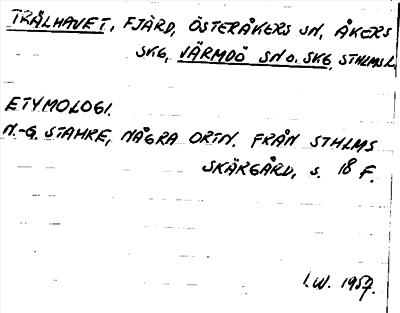 TRÄLHAVET, FJÄRD, ÖSTERÅKERS SN, ÅKERS
SKG, VÄRMDÖ SN O. SKG, STHLMS L.
ETYMOLOGI.
N.-G. STAHRE, NÅGRA ORTN. FRÅN STHLMS
SKÄRGÅRD, s. 18 F.
I.W. 1957.